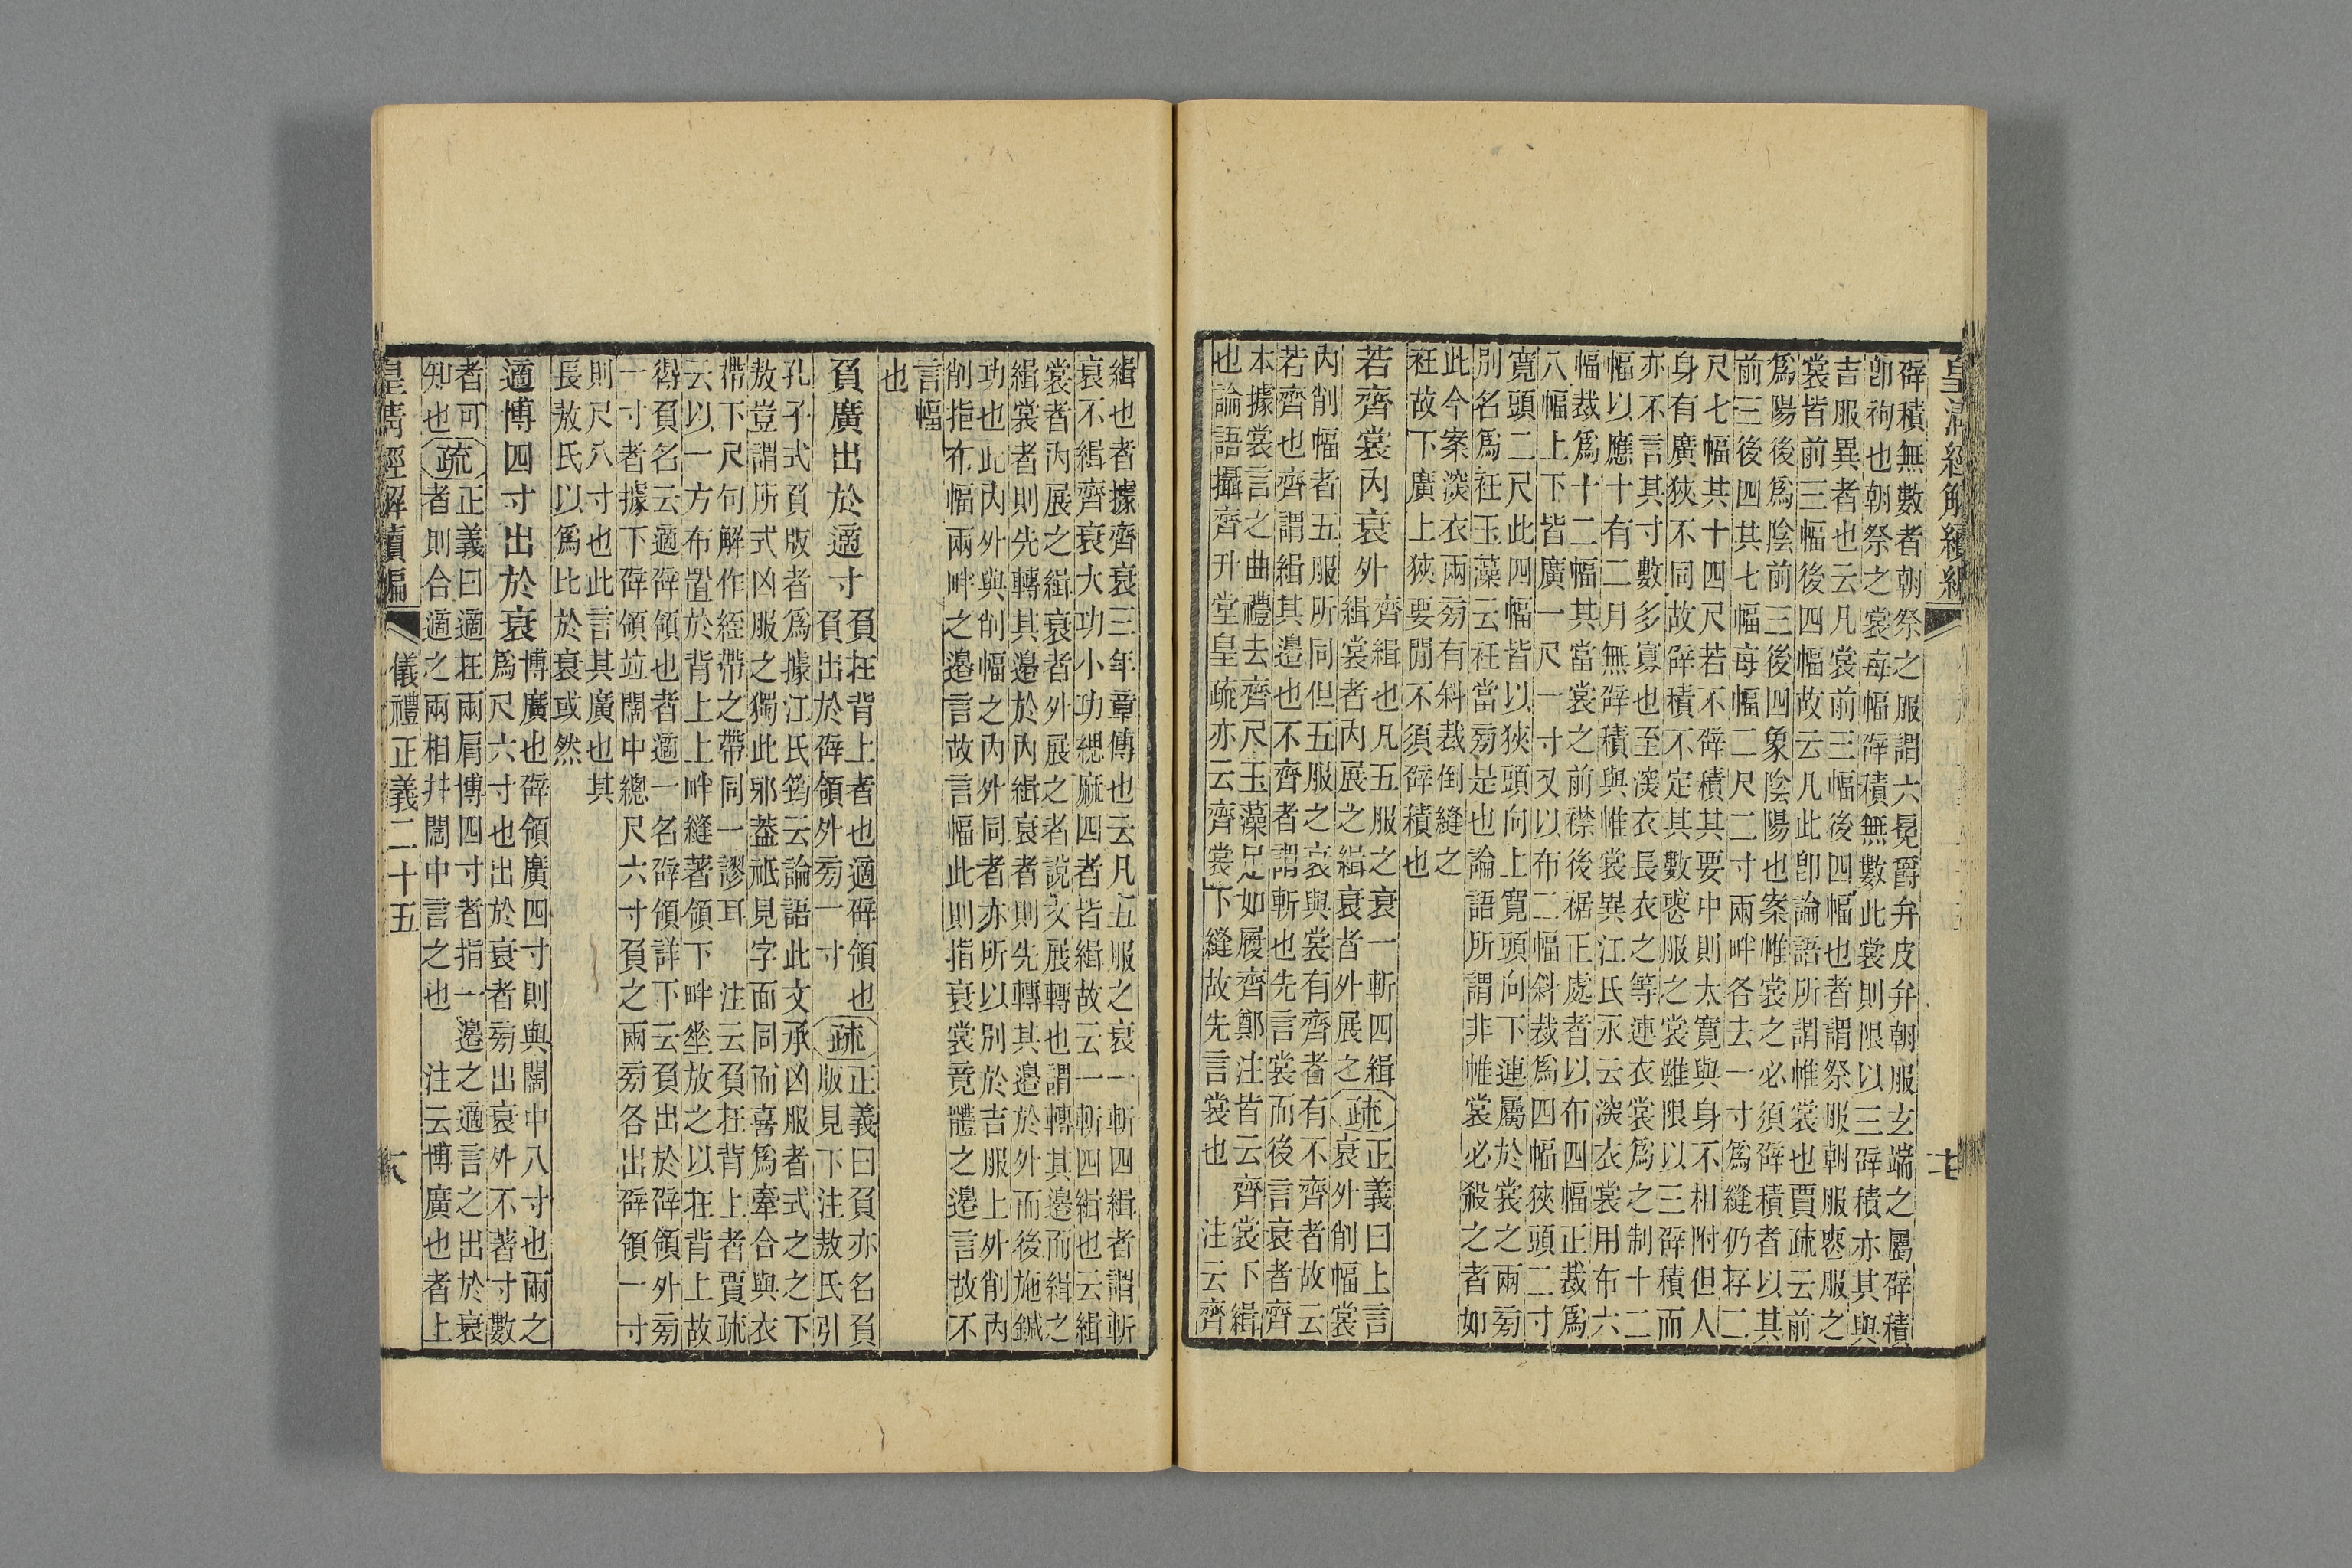 皇清經解續編
襞積無數者朝祭之服謂六冕爵弁皮弁朝服玄端之屬襞積
卽祠也朝祭之裳每幅襞積無數此裳則限以三襞積亦其與
吉服異者也云凡裳前三幅後四幅也者謂祭服朝服喪服之
裳皆前三幅後四幅故云凡此卽論語所謂帷裳也賈疏云前
爲陽後爲陰前三後四象陰陽也案帷裳之必須襞積者以其
前三後四其七幅每幅二尺二寸兩畔各去一寸爲縫仍存二
尺七幅共十四尺若不襞積其要中則太寬與身不相附但人
身有廣狹不同故襞積不定其數喪服之裳雖限以三襞積而
亦不言其寸數多寡也至深衣長衣之等連衣裳爲之制十二
幅以應十有二月無襞積與帷裳異江氏永云深衣裳用布六
幅裁爲十二幅其當裳之前襟後裾正處者以布四幅正裁爲
八幅上下皆廣一尺一寸又以布二幅斜裁爲四幅狹頭二寸
寬頭二尺此四幅皆以狹頭向上寬頭向下連屬於裳之兩旁
別名爲衽玉藻云衽當旁是也論語所謂非帷裳必殺之者如
此今案深衣兩旁有斜裁倒縫之
衽故下廣上狹要閒不須襞積也
若齊裳內衰外
齊緝也凡五服之衰一斬四緝
緝裳者內展之緝衰者外展之
疏
正義曰上言
衰外削幅裳
內削幅者五服所同但五服之衰與裳有齊者有不齊者故云
若齊也齊謂緝其邉也不齊者謂斬也先言裳而後言衰者齊
本據裳言之曲禮去齊尺玉藻足如履齊鄭注皆云齊裳下緝
也論語攝齊升堂皇疏亦云齊裳下縫故先言裳也　注云齊
緝也者據齊衰三年章傳也云凡五服之衰一斬四緝者謂斬
衰不緝齊衰大功小功緦麻四者皆緝故云一斬四緝也云緝
裳者內展之緝衰者外展之者說文展轉也謂轉其邉而緝之
緝裳者則先轉其邉於內緝衰者則先轉其邉於外而後施鍼
功也此內外與削幅之內外同者亦所以別於吉服上外削內
削指布幅兩畔之邉言故言幅此則指衰裳竟體之邉言故不
言幅
也
負廣出於適寸
負在背上者也適襞領也
負出於襞領外旁一寸
疏
正義曰負亦名負
版見下注敖氏引
孔子式負版者爲據江氏筠云論語此文承凶服者式之之下
敖豈謂所式凶服之獨此邪葢祇見字面同而喜爲牽合與衣
帶下尺句解作絰帶之帶同一謬耳　注云負在背上者賈疏
云以一方布置於背上上畔縫著領下畔坐放之以在背上故
得負名云適襞領也者適一名襞領詳下云負出於襞領外旁
一寸者據下襞領竝闊中總尺六寸負之兩旁各出襞領一寸
則尺八寸也此言其廣也其
長敖氏以爲比於衰或然
適博四寸出於衰
博廣也襞領廣四寸則與闊中八寸也兩之
爲尺六寸也出於衰者旁出衰外不著寸數
者可
知也
疏
正義曰適在兩肩博四寸者指一邉之適言之出於衰
者則合適之兩相幷闊中言之也　注云博廣也者上
皇清經解續編
儀禮正義二十五